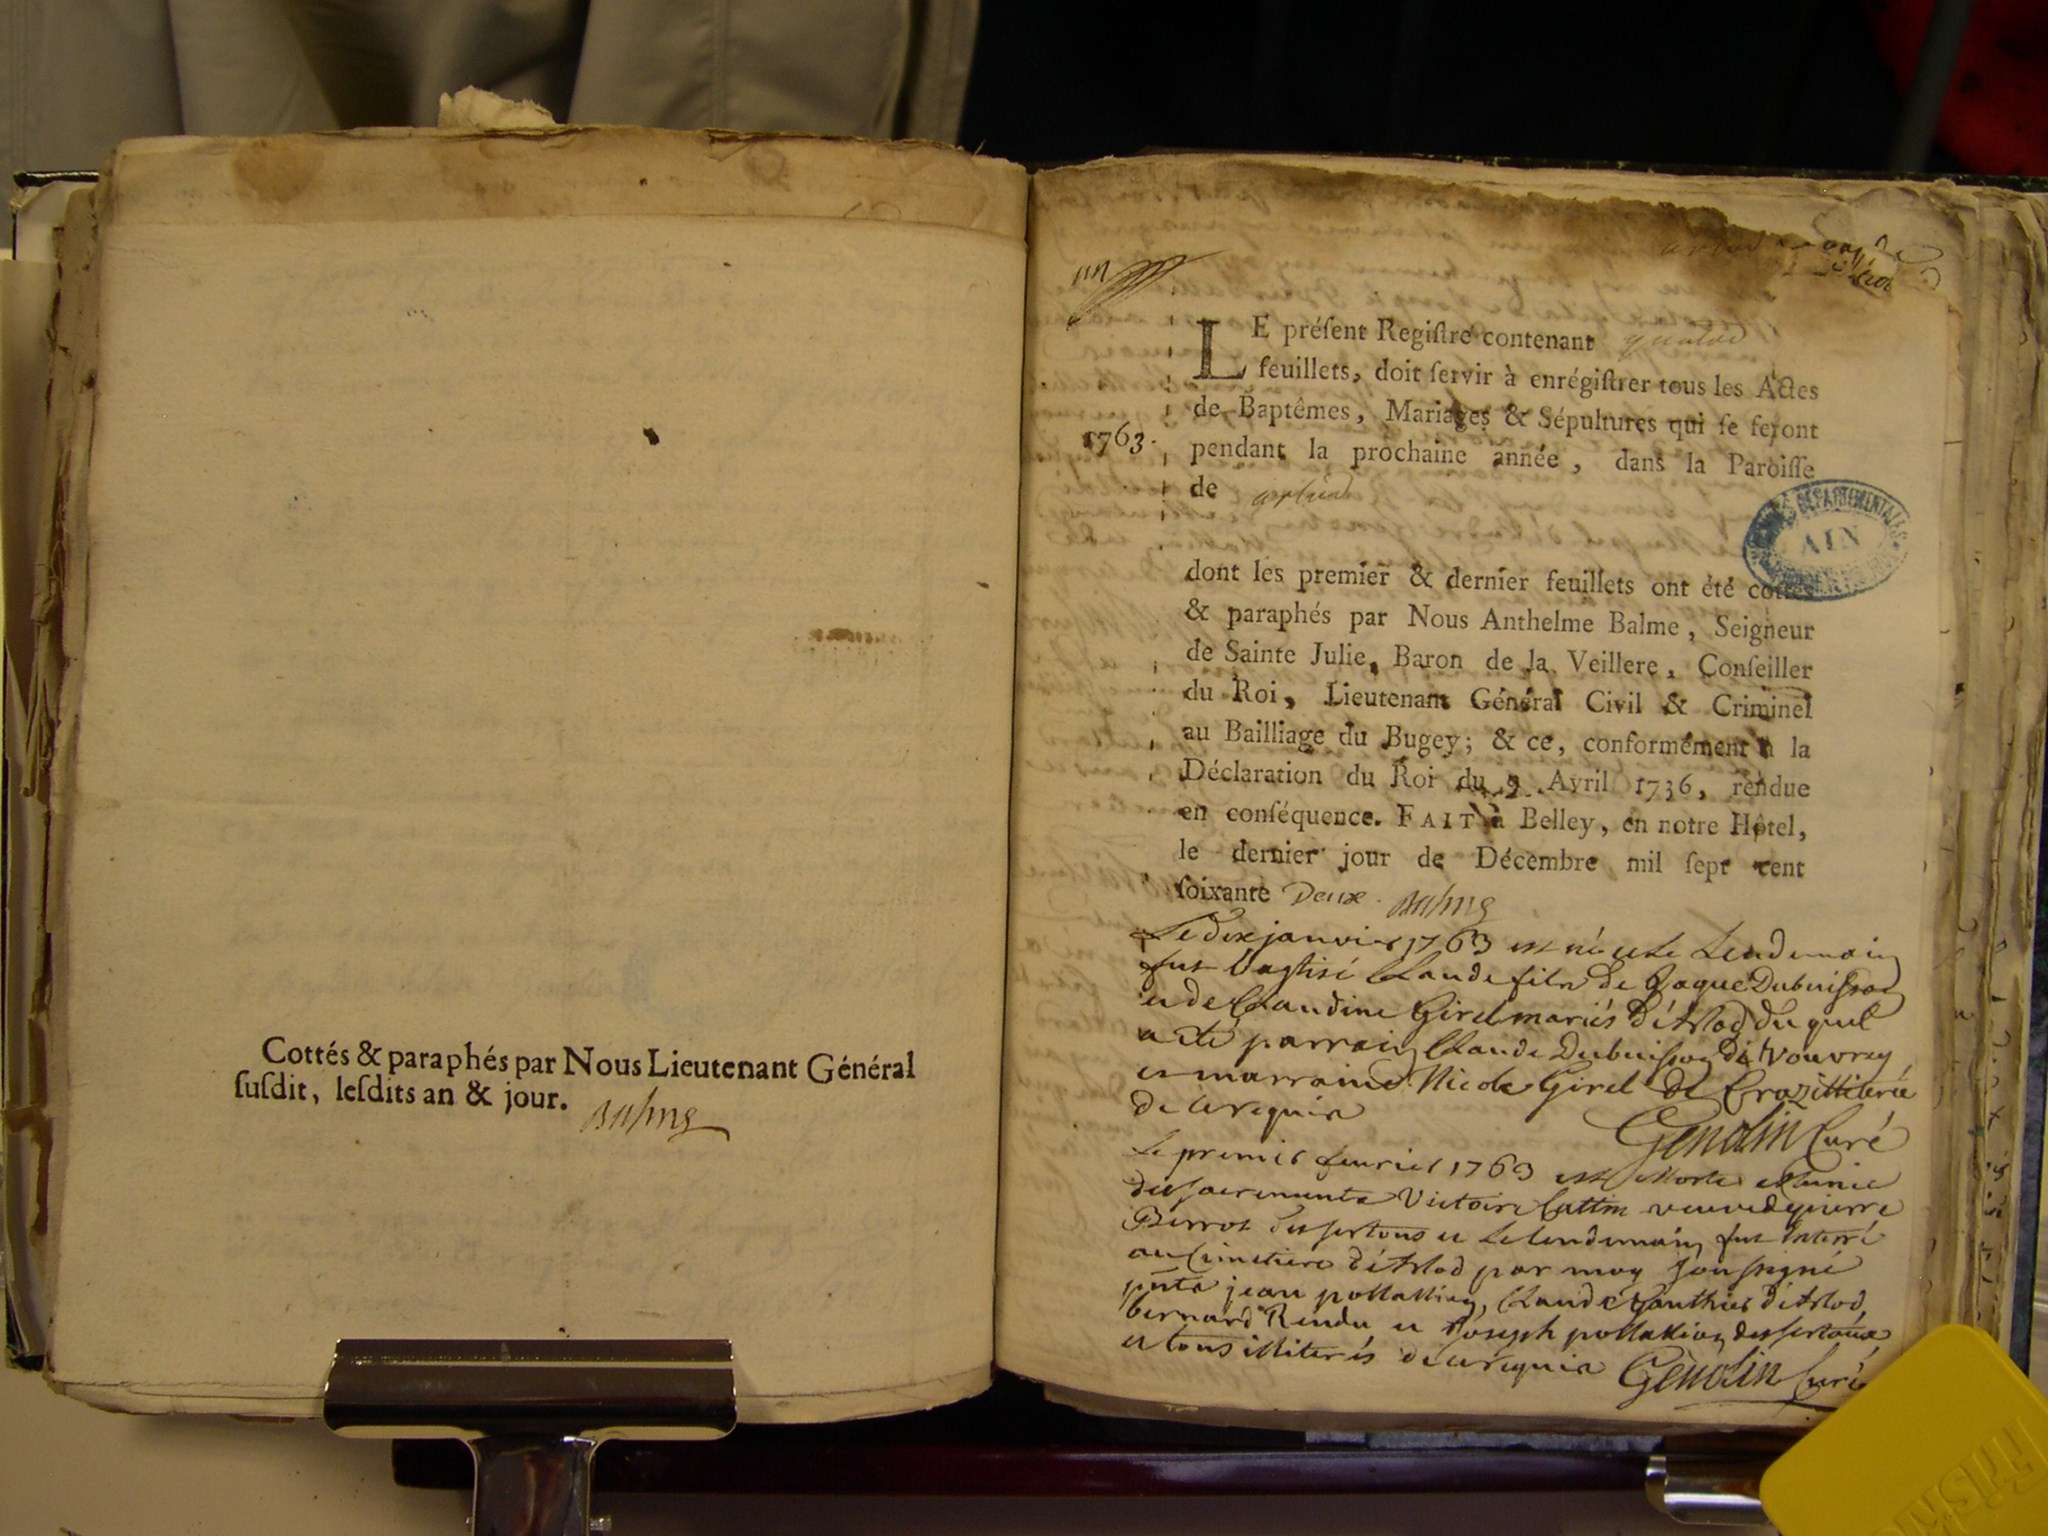 Cottés & paraphés par Nous Lieutenant Général
ſuſdit, leſdits an & jour.
Balme
LE préſent Regiſtre contenant
feuillets, doit ſervir à enrégiſtrer tous les Actes
de Baptêmes, Mariages & Sépultures qui ſe feront
1763. pendant la prochaine année, dans la Paroiſſe
de
ARCHIVES DÉPARTEMENTALES
AIN
dont les premier & dernier feuillets ont été cottés
& paraphés par Nous Anthelme Balme, Seigneur
de Sainte Julie, Baron de la Veillere, Conſeiller
du Roi, Lieutenant Général Civil & Criminel
au Bailliage du Bugey; & ce, conformément à la
Déclaration du Roi du 9 Avril 1736, rendue
en conſéquence. FAIT à Belley, en notre Hôtel,
le dernier jour de Décembre mil ſept cent
ſoixante Deux. Balme
Le dix janvier 1763 est né et le Lendemain
fut baptisé Claude fils de Jaque Dubuisson
et de Claudine Girel mariés d'Arlod du quel
a été parrain Claude Dubuisson de Vouvray
et marraine Nicole Girel de
de ce requis Genolin Curé
Le premier fevrier 1763 est Morte Munie
des sacrements Victoire Cattin veuve de pierre
Berrot des sertoux et Le lendemain fut Enterré
au Cimetiere d'Arlod par moy soussigné
pnts jean pollallion, Claude Gauthier d'Arlod
bernard Rendu et Joseph pollallion des sertoux
et tous illiterés de ce requis Genolin Curé